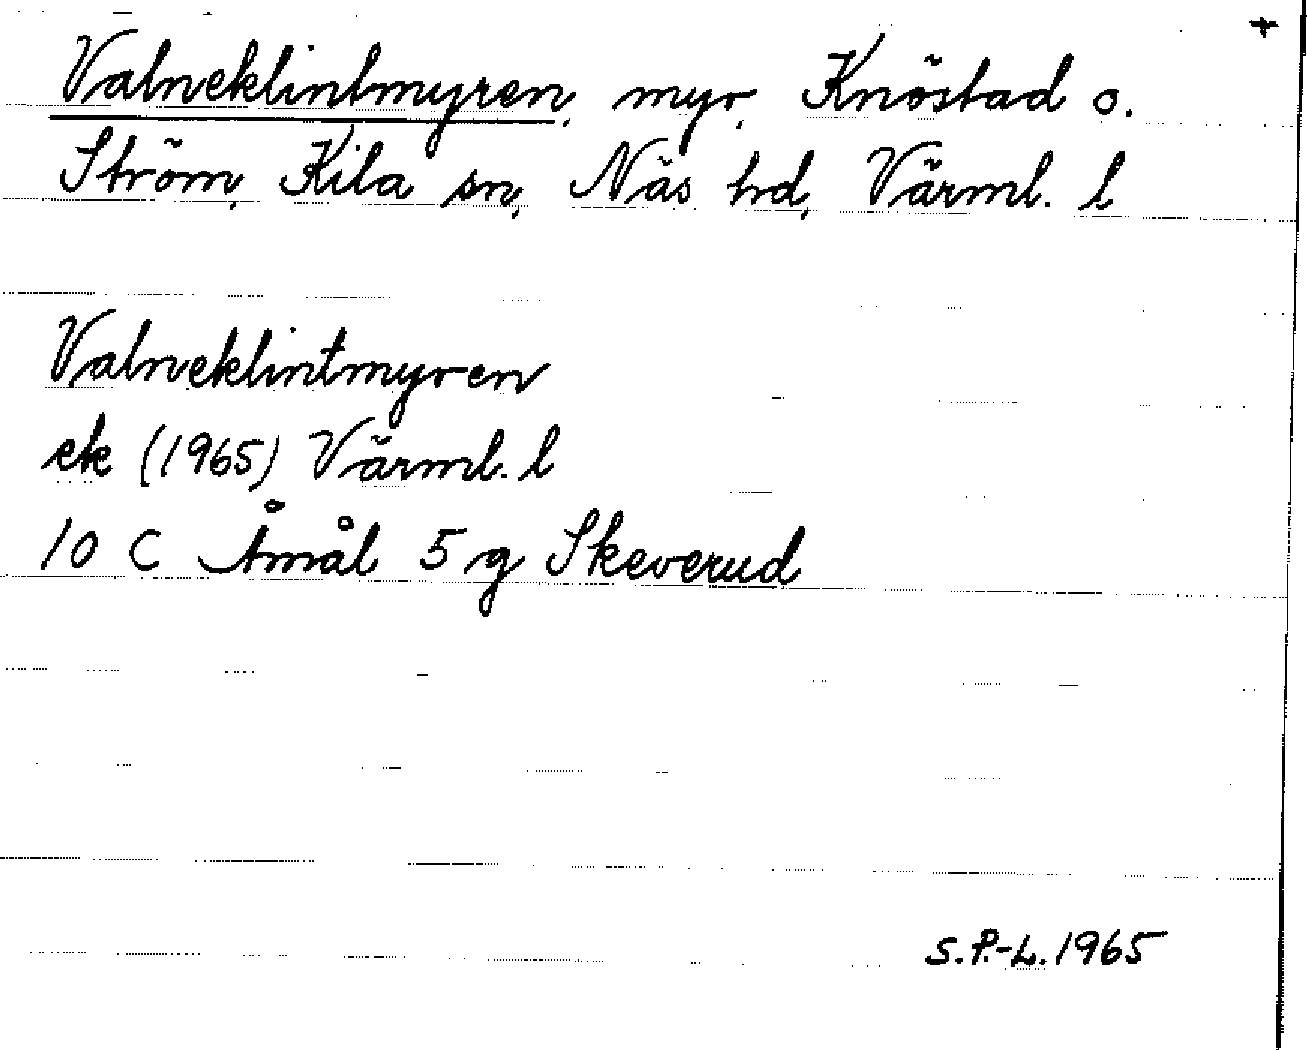 +
Valneklintmyren, myr, Knöstad o.
Ström, Kila sn, Näs hd, Värml. l
Valneklintmyren
ek (1965) Värml. l
10 C Åmål 5 g Skeverud
S.P.-L. 1965